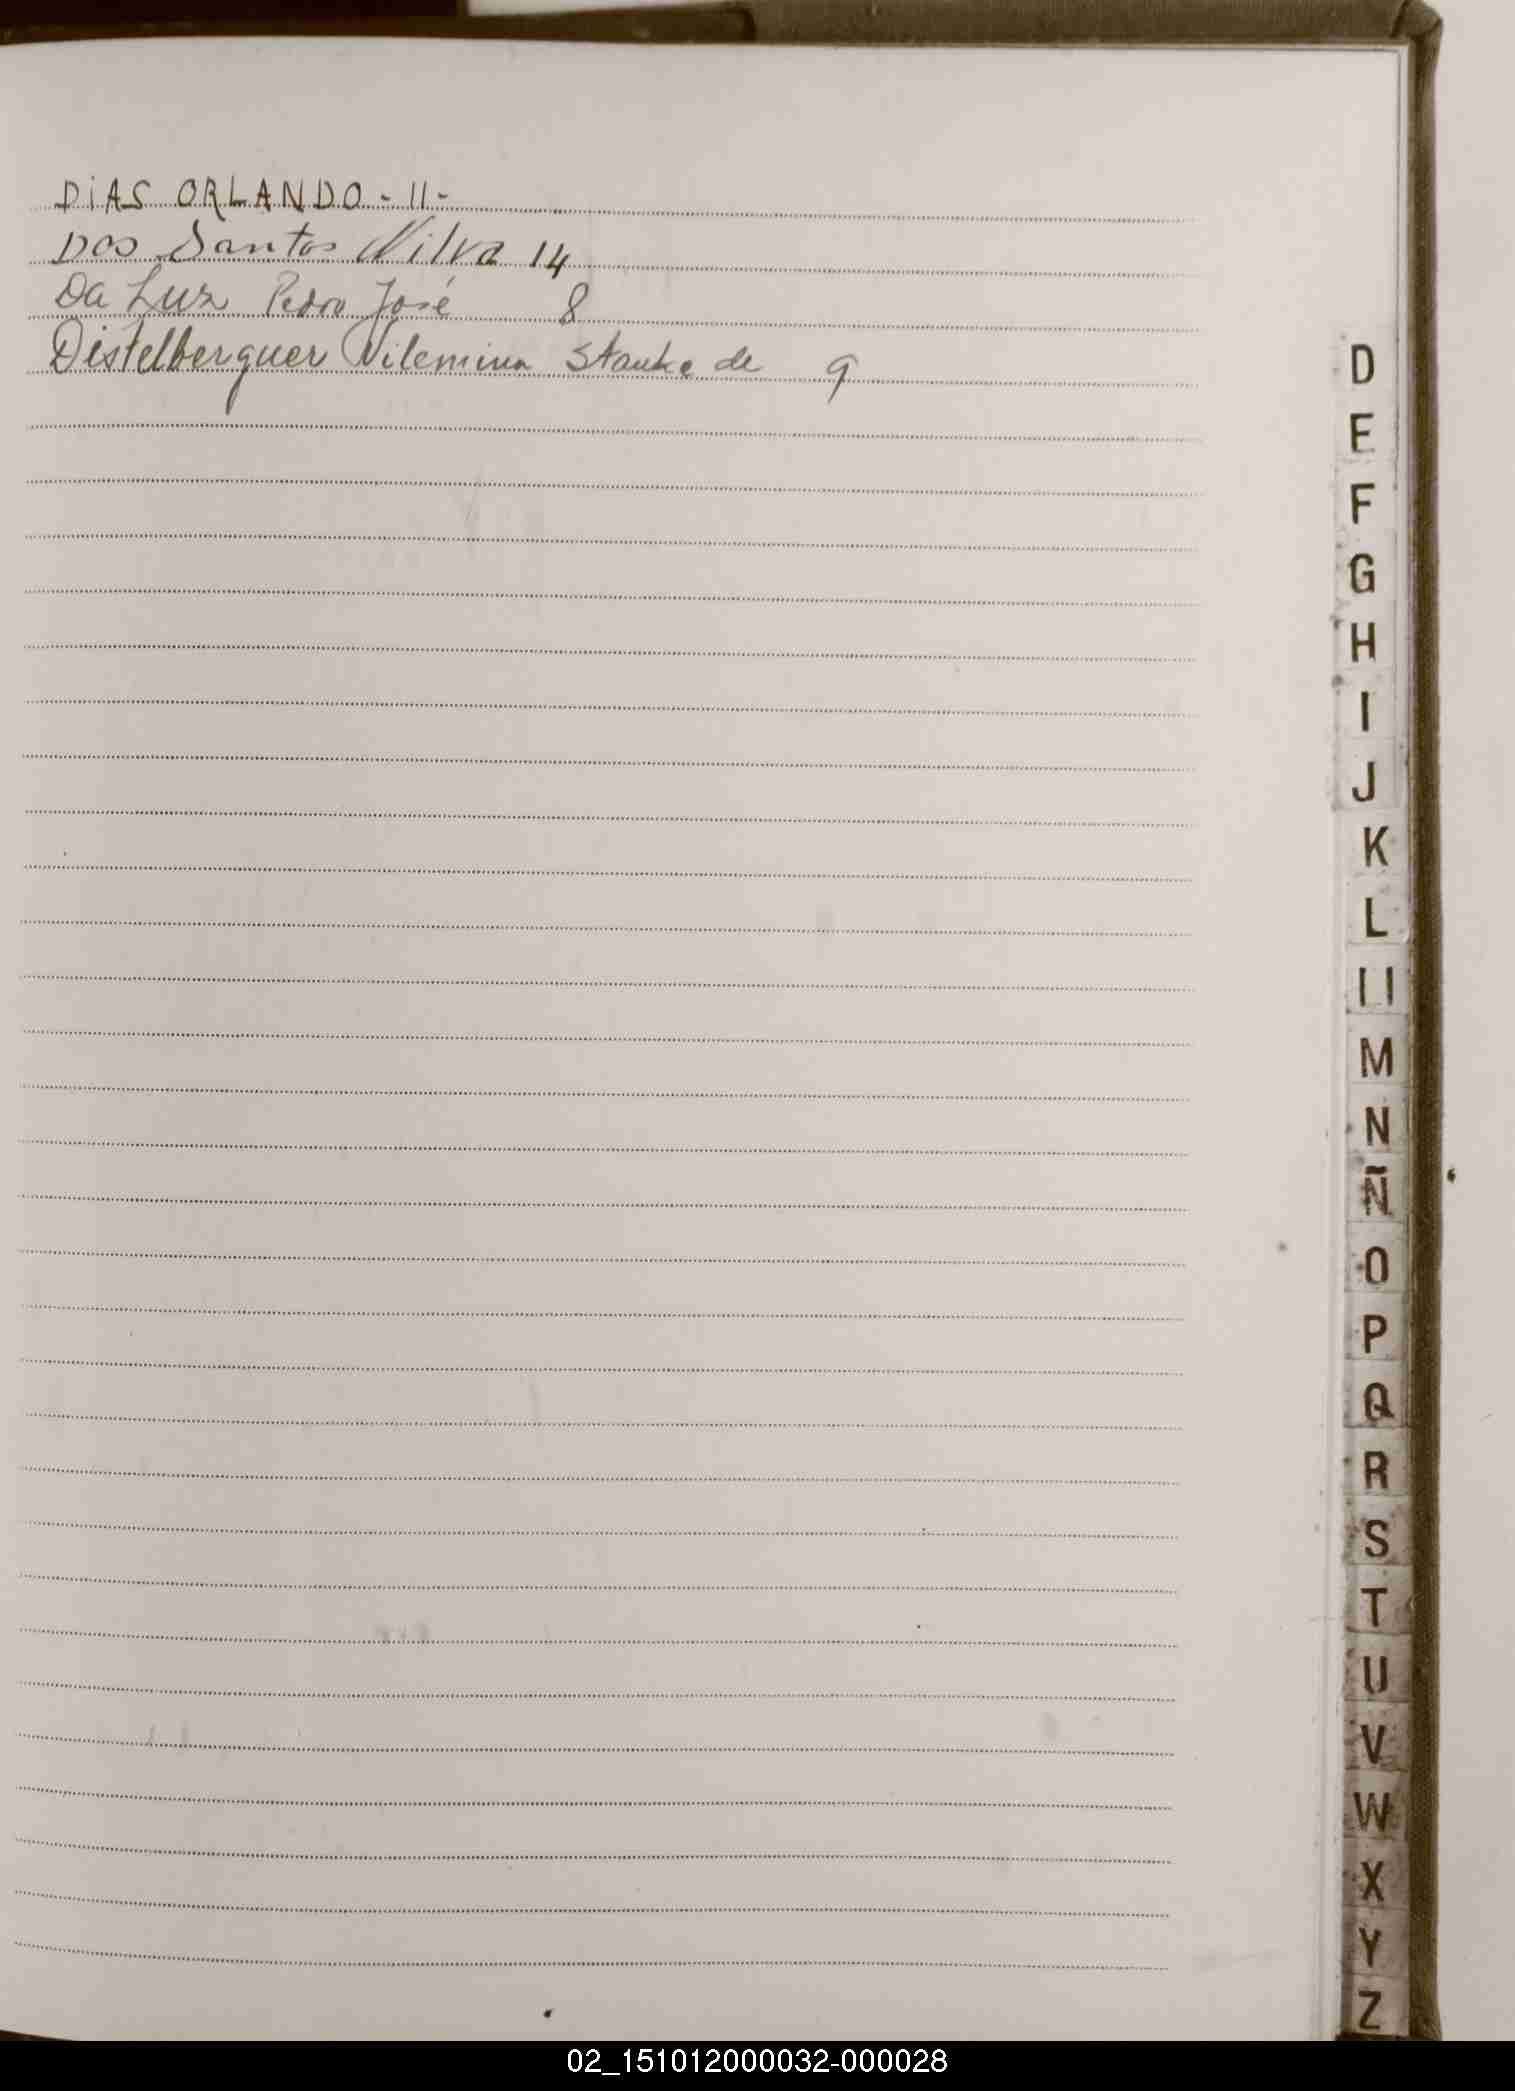 DiAS ORLANDO - 11 -
Dos Santos Nilva 14
Da Luz Pedro José 8
Distelberguer Vilemina Stanke de 9
D
E
F
G
H
I
J
K
L
Ll
M
N
Ñ
O
P
Q
R
S
T
U
V
W
X
Y
Z
02_151012000032-000028